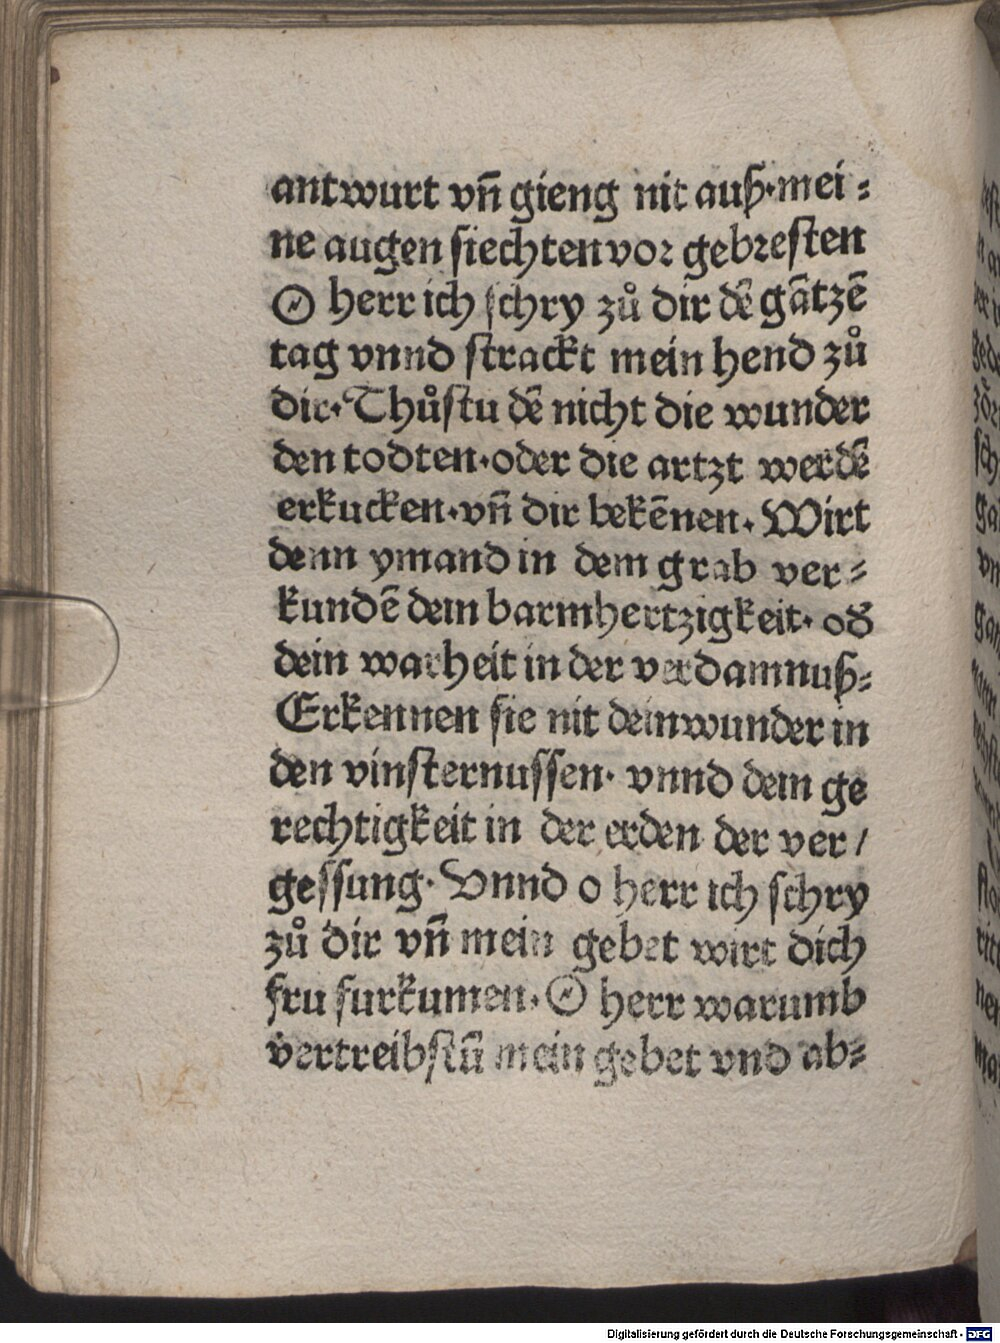 antwurt vn̄ gieng nit auß·mei⸗
ne augen siechten vor gebresten
O herr ich schry zů dir dē gātzē
tag vnnd strackt mein hend zů
dir·Thůstu dē nicht die wunder
den todten·oder die artzt werdē
erkucken·vn̄ dir bekēnen·Wirt
denn ymand in dem grab ver⸗
kundē dein barmhertzigkeit·od̄
dein warheit in der verdamnuß⸗
Erkennen sie nit dein wunder in
den vinsternussen·vnnd dein ge
rechtigkeit in der erden der ver/
gessung·Vnnd o herr ich schry
zů dir vn̄ mein gebet wirt dich
fru furkumen·O herr warumb
vertreibstū mein gebet vnd ab⸗
Digitalisierung gefördert durch die Deutsche Forschungsgemeinschaft - DFG